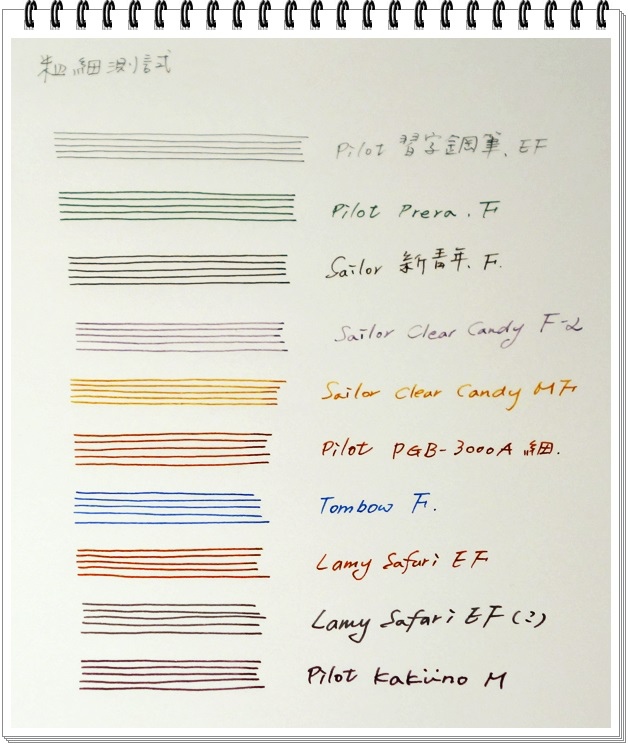 粗細測試
Pilot 習字鋼筆. EF
Pilot Prera. F
Sailor 新青年. F.
Sailor Clear Candy F-2
Sailor Clear Candy MF
Pilot PGB-3000A 細.
Tombow F.
Lamy Safari EF
Lamy Safari EF (2)
Pilot Kakiino M